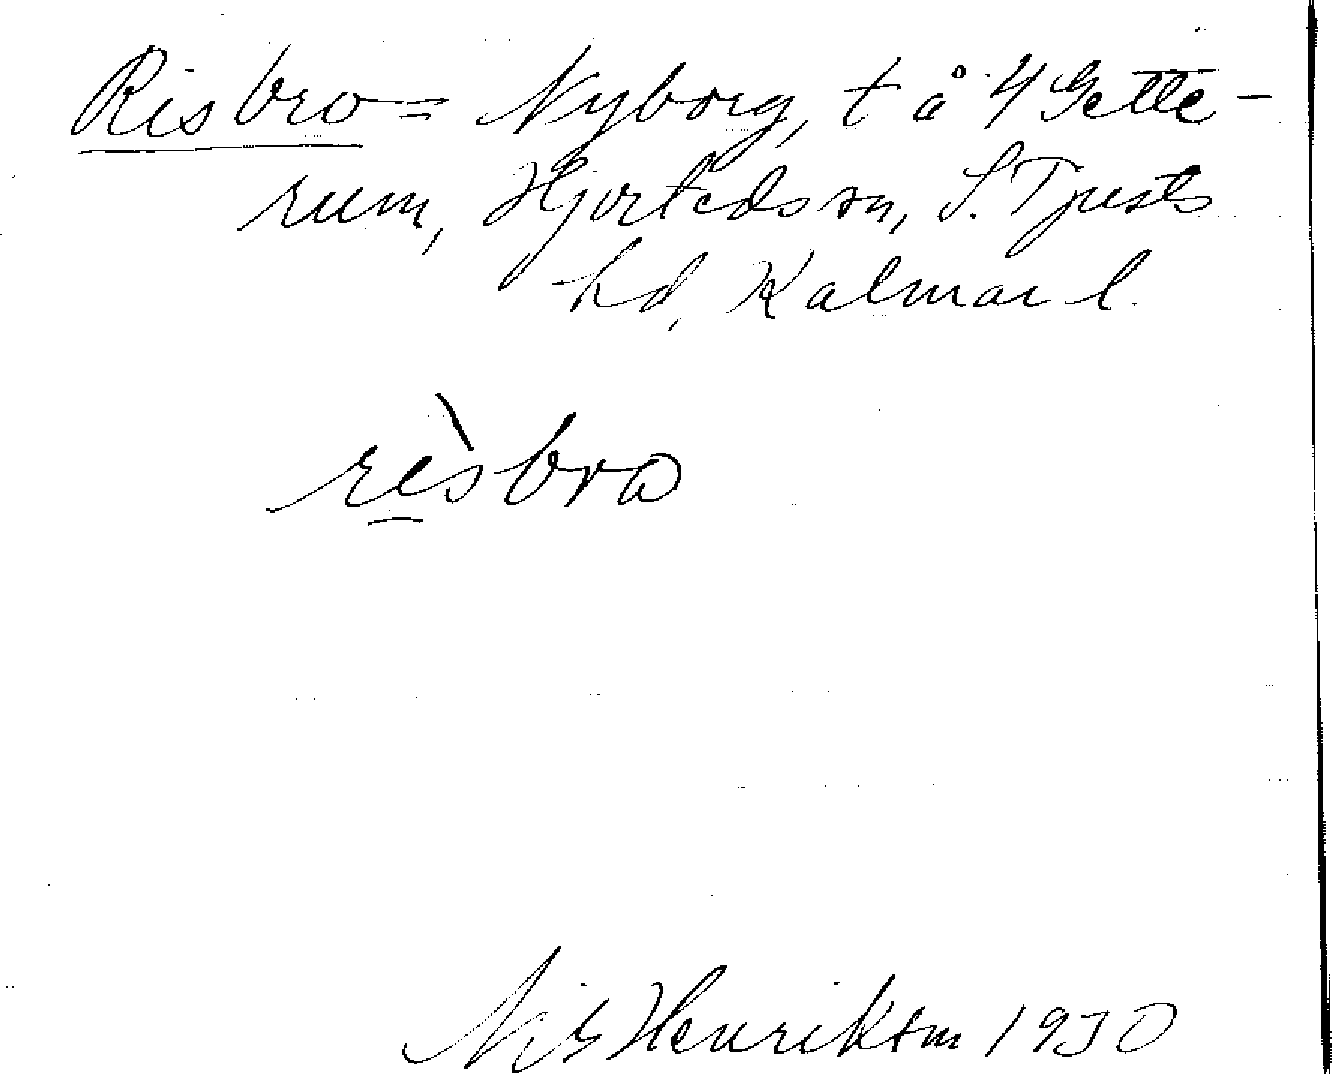 Risbro = Nyborg, t å 4 Gette-
rum, Hjorteds sn, S. Tjusts
hd, Kalmar l.
rèsbro
Nils Henriksson 1930